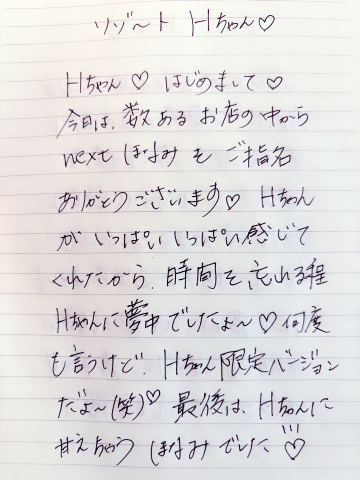 リゾート Hちゃん♡
Hちゃん♡ はじめまして♡
今日は、数あるお店の中から
next ほなみをご指名
ありがとうございます♡ Hちゃん
がいっぱいいっぱい感じて
くれたから、時間を忘れる程
Hちゃんに夢中でしたよ〜♡何度
も言うけど、Hちゃん限定バージョン
だよ〜(笑)♡ 最後は、Hちゃんに
甘えちゃうほなみでした♡